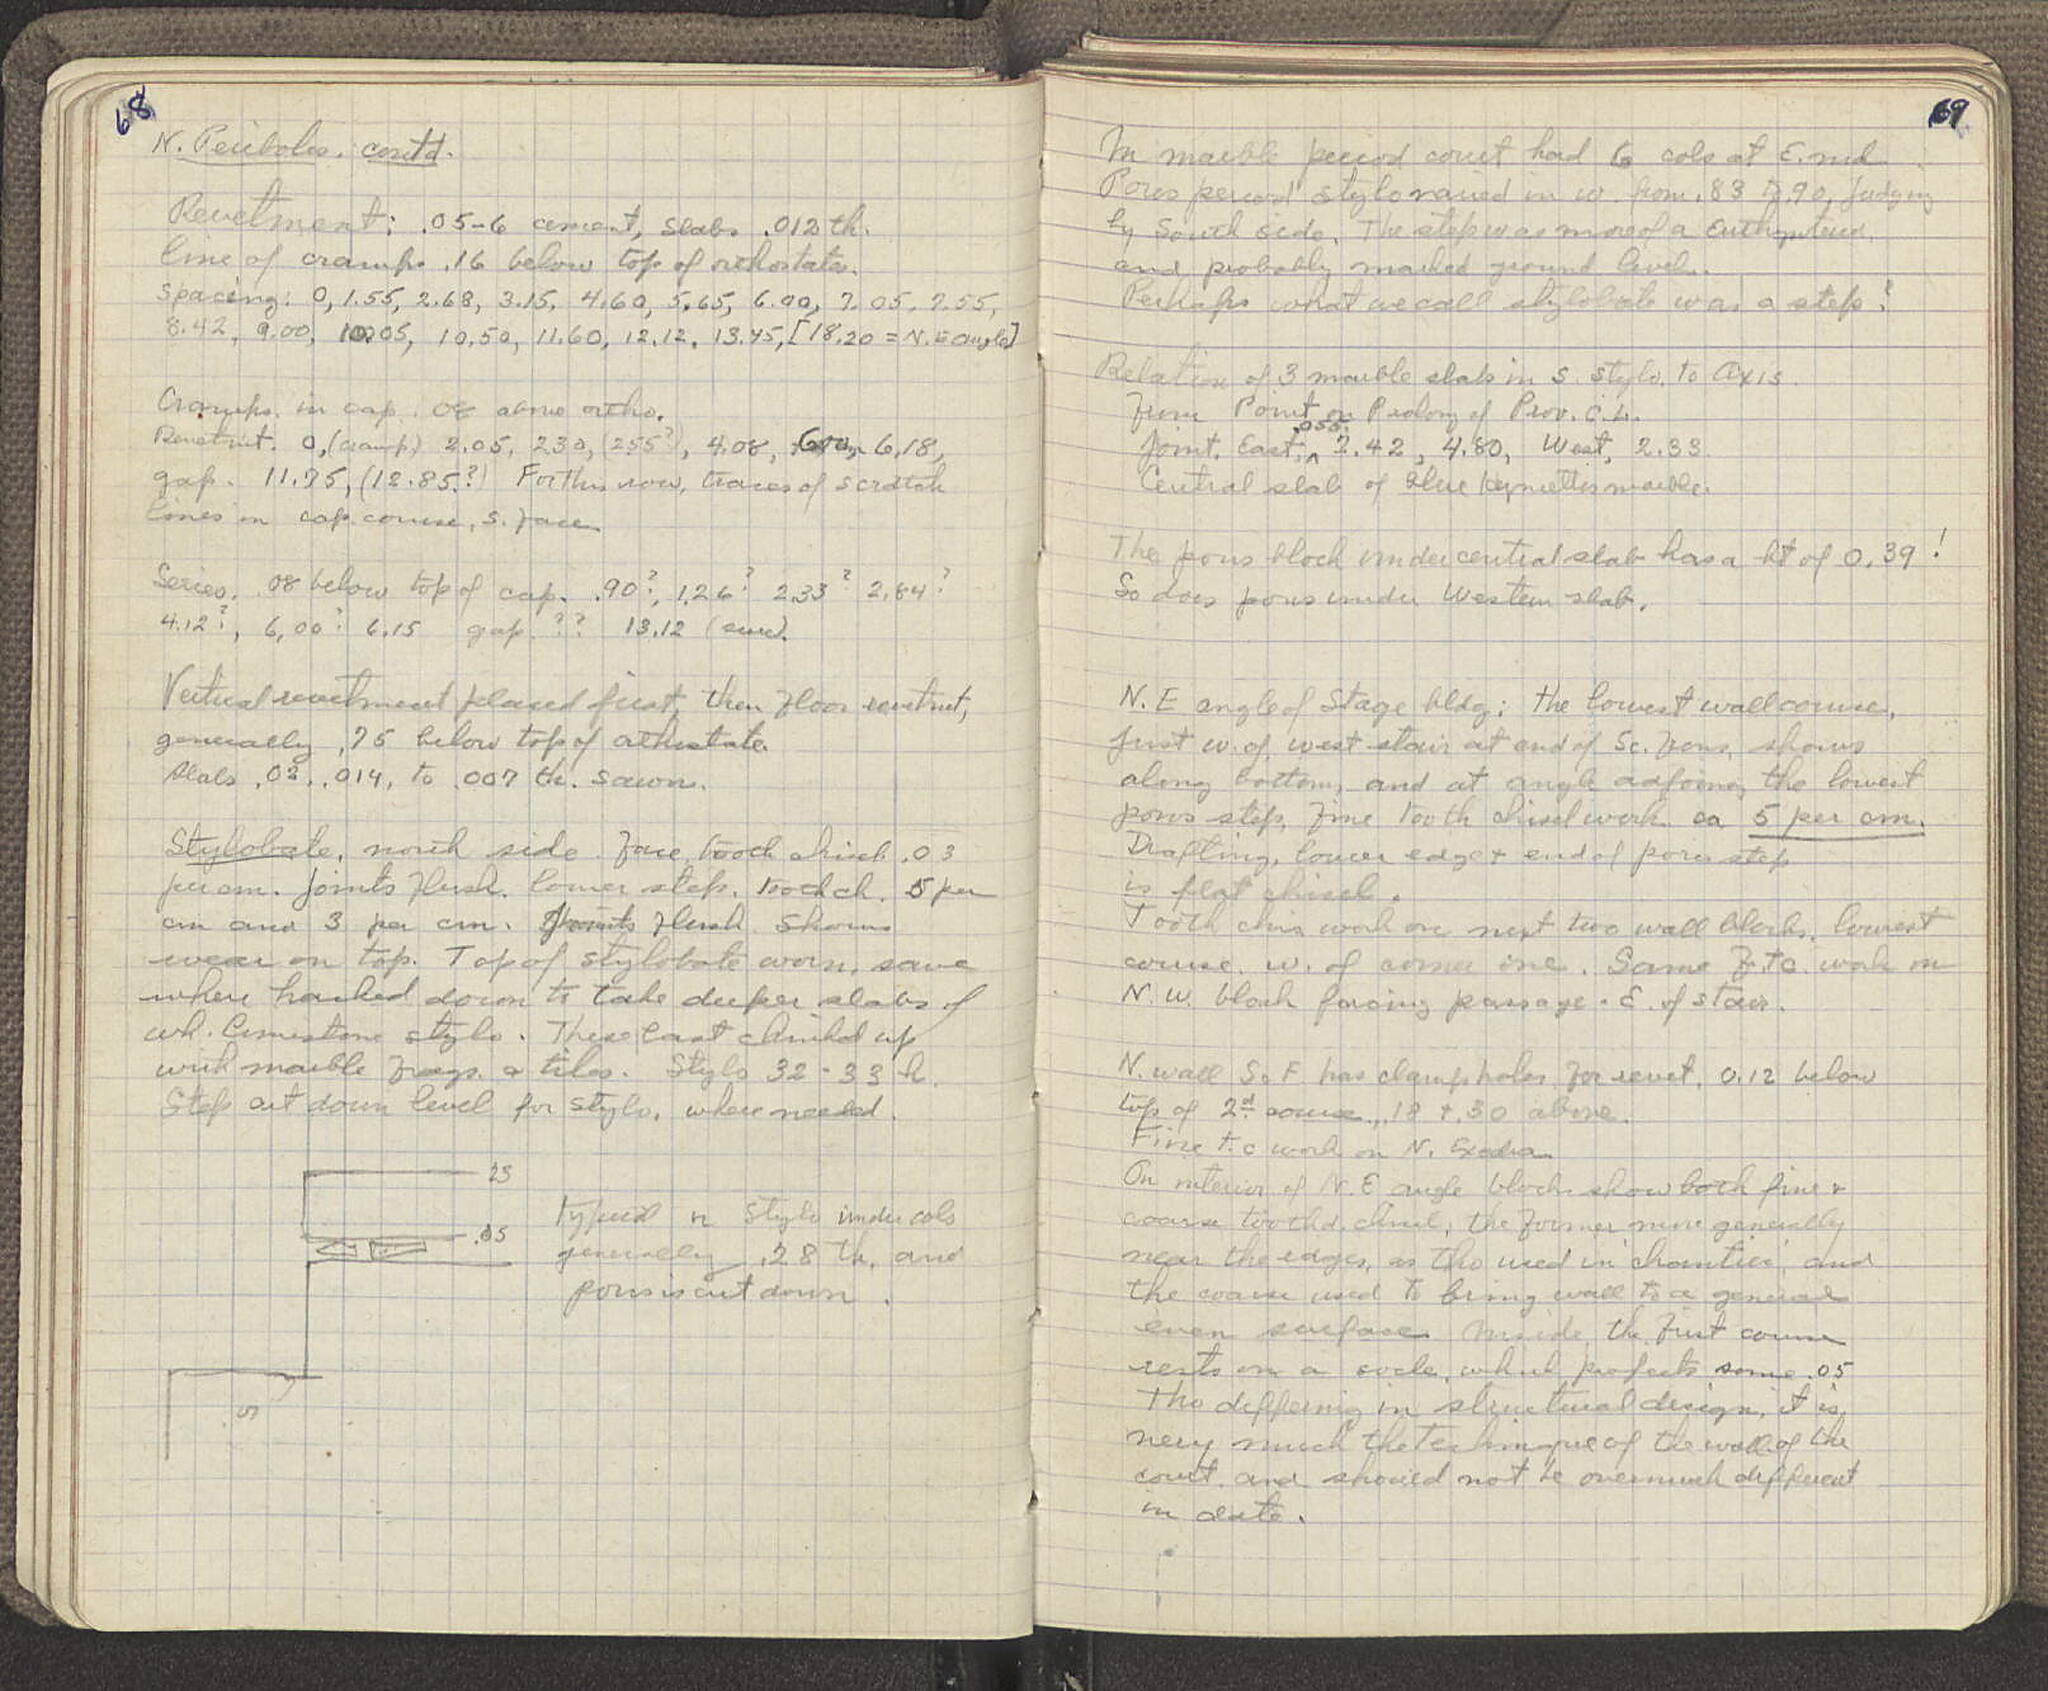 68
N. Peribolos. contd.
Revetment: .05-6 cement, slabs .012 th.
line of cramps .16 below top of orthostates.
Spacing: 0, 1.55, 2.68, 3.15, 4.60, 5.65, 6.00, 7.05, 7.55,
8.42, 9.00, 10.05, 10.50, 11.60, 12.12, 13.45, [18.20 = N.E angle]
Cramps in cap. 08 above ortho.
Revetmt. 0, (cramp) 2.05, 230, (255?), 4.08, 6.18,
gap. 11.75, (12.85?) For this row, traces of scratch
lines on cap course, S. face
Series. .08 below top of cap. .90?, 1.26? 2.33? 2.84?
4.12?, 6.00? 6.15 gap ?? 13.12 (sure).
Vertical revetment placed first, then floor revetmt,
generally .75 below top of orthostate.
Slabs .02, .014, to .007 th. sawn.
Stylobate, north side. Face, tooch chisel .03
per cm. joints flush. lower step. tooch ch. 5 per
cm and 3 per cm. Joints flush. Shows
wear on top. Top of stylobate worn, save
where hacked down to take deeper slabs of
wh. limestone stylo. These last chinked up
with marble frags. & tiles. Stylo 32-33 h.
Step cut down level for stylo, where needed.
25
.05
5
typical n stylo under cols
generally .28 th, and
poros is cut down.
69
In marble period court had 6 cols at E. end
Poros period stylo varied in w. from .83 to .90, judging
by South side. The step was more of a Euthynteria
and probably marked ground level.
Perhaps what we call stylobate was a step?
Relation of 3 marble slabs in S. stylo. to Axis.
From Point on Prolong of Prov. C.L.
.055
Joint. East, 2.42, 4.80, West, 2.33.
Central slab of blue Hymettis marble.
The poros block under central slab has a ht of 0.39!
So does poros under Western slab.
N.E angle of Stage bldg: the lowest wall course,
just w. of west stair at end of Sc. Frons, shows
along bottom, and at angle adjoing the lowest
poros step, fine tooth chisel work ca 5 per cm.
Drafting, lower edge & end of poros step
is flat chisel.
Tooth chis work on next two wall blocks, lowest
course. w. of corner one. Same F.T.C. work on
N.W. block facing passage. E. of stair.
N. wall Sc F has clamp holes for revet, 0.12 below
top of 2d course, .18 & .30 above.
Fine t.c work on N. Exedra
On interior of N.E angle blocks show both fine &
coarse toothd. chisel, the former more generally
near the edges, as tho used in chantier, and
the coarse used to bring wall to a general
even surface. Inside, the first course
rests on a socle, which projects some .05
Tho differing in structural design, it is
very much the technique of the wall of the
court, and should not be overmuch different
in date.